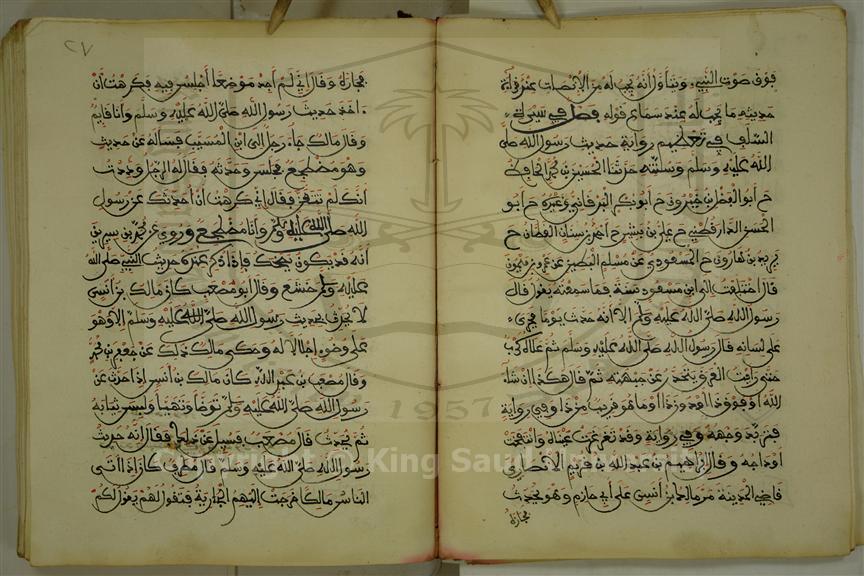 فوق صوت النبي وتناول أنه يجب له من الإنصات عند قراءة
حديثه ما يجب له عند سماع قوله فصل في سيرة
السلف في تعظيمهم رواية حديث رسول الله صلى
الله عليه وسلم وسنته حدثنا الحسين بن محمد الحافظ
ح أبو الفضل بن خيرون ح أبو بكر البرقاني وغيره ح أبو
الحسن الدارقطني ح علي بن مبشر ح أحمد بن سنان القطان ح
يزيد بن هارون ح المسعودي عن مسلم البطين عن عمرو بن ميمون
قال اختلفت إلى ابن مسعود سنة فما سمعته يقول قال
رسول الله صلى الله عليه وسلم إلا أنه حدث يوما فجرى
على لسانه قال رسول الله صلى الله عليه وسلم ثم علاه كرب
حتى رأيت العرق يتحدر عن جبهته ثم قال هكذا إن شاء
الله أو فوق ذا أو دون ذا أو ما هو قريب من ذا وفي رواية
فتربد وجهه وفي رواية وقد تغرغرت عيناه وانتفخت
أوداجه وقال إبراهيم بن عبد الله بن قريم الأنصاري
قاضي المدينة مر مالك بن أنس على أبي حازم وهو يحدث
فجازه
٢٧
فجازه وقال إني لم أجد موضعا أجلس فيه فكرهت أن
آخذ حديث رسول الله صلى الله عليه وسلم وأنا قائم
وقال مالك جاء رجل إلى ابن المسيب فسأله عن حديث
وهو مضطجع فجلس وحدثه فقال له الرجل وددت
أنك لم تتعن فقال إني كرهت أن أحدثك عن رسول
الله صلى الله عليه وسلم وأنا مضطجع وروي عن محمد بن سيرين
أنه قد يكون يضحك فإذا ذكر عنده حديث النبي صلى الله
عليه وسلم خشع وقال أبو مصعب كان مالك بن أنس
لا يحدث بحديث رسول الله صلى الله عليه وسلم إلا وهو
على وضوء إجلالا له وحكى مالك ذلك عن جعفر بن محمد
وقال مصعب بن عبد الله كان مالك بن أنس إذا حدث عن
رسول الله صلى الله عليه وسلم توضأ وتهيأ ولبس ثيابه
ثم يحدث قال مصعب فسئل عن ذلك فقال إنه حديث
رسول الله صلى الله عليه وسلم قال مطرف كان إذا أتى
الناس مالكا خرجت إليهم الجارية فتقول لهم يقول لكم
1957
Copyright © King Saud University